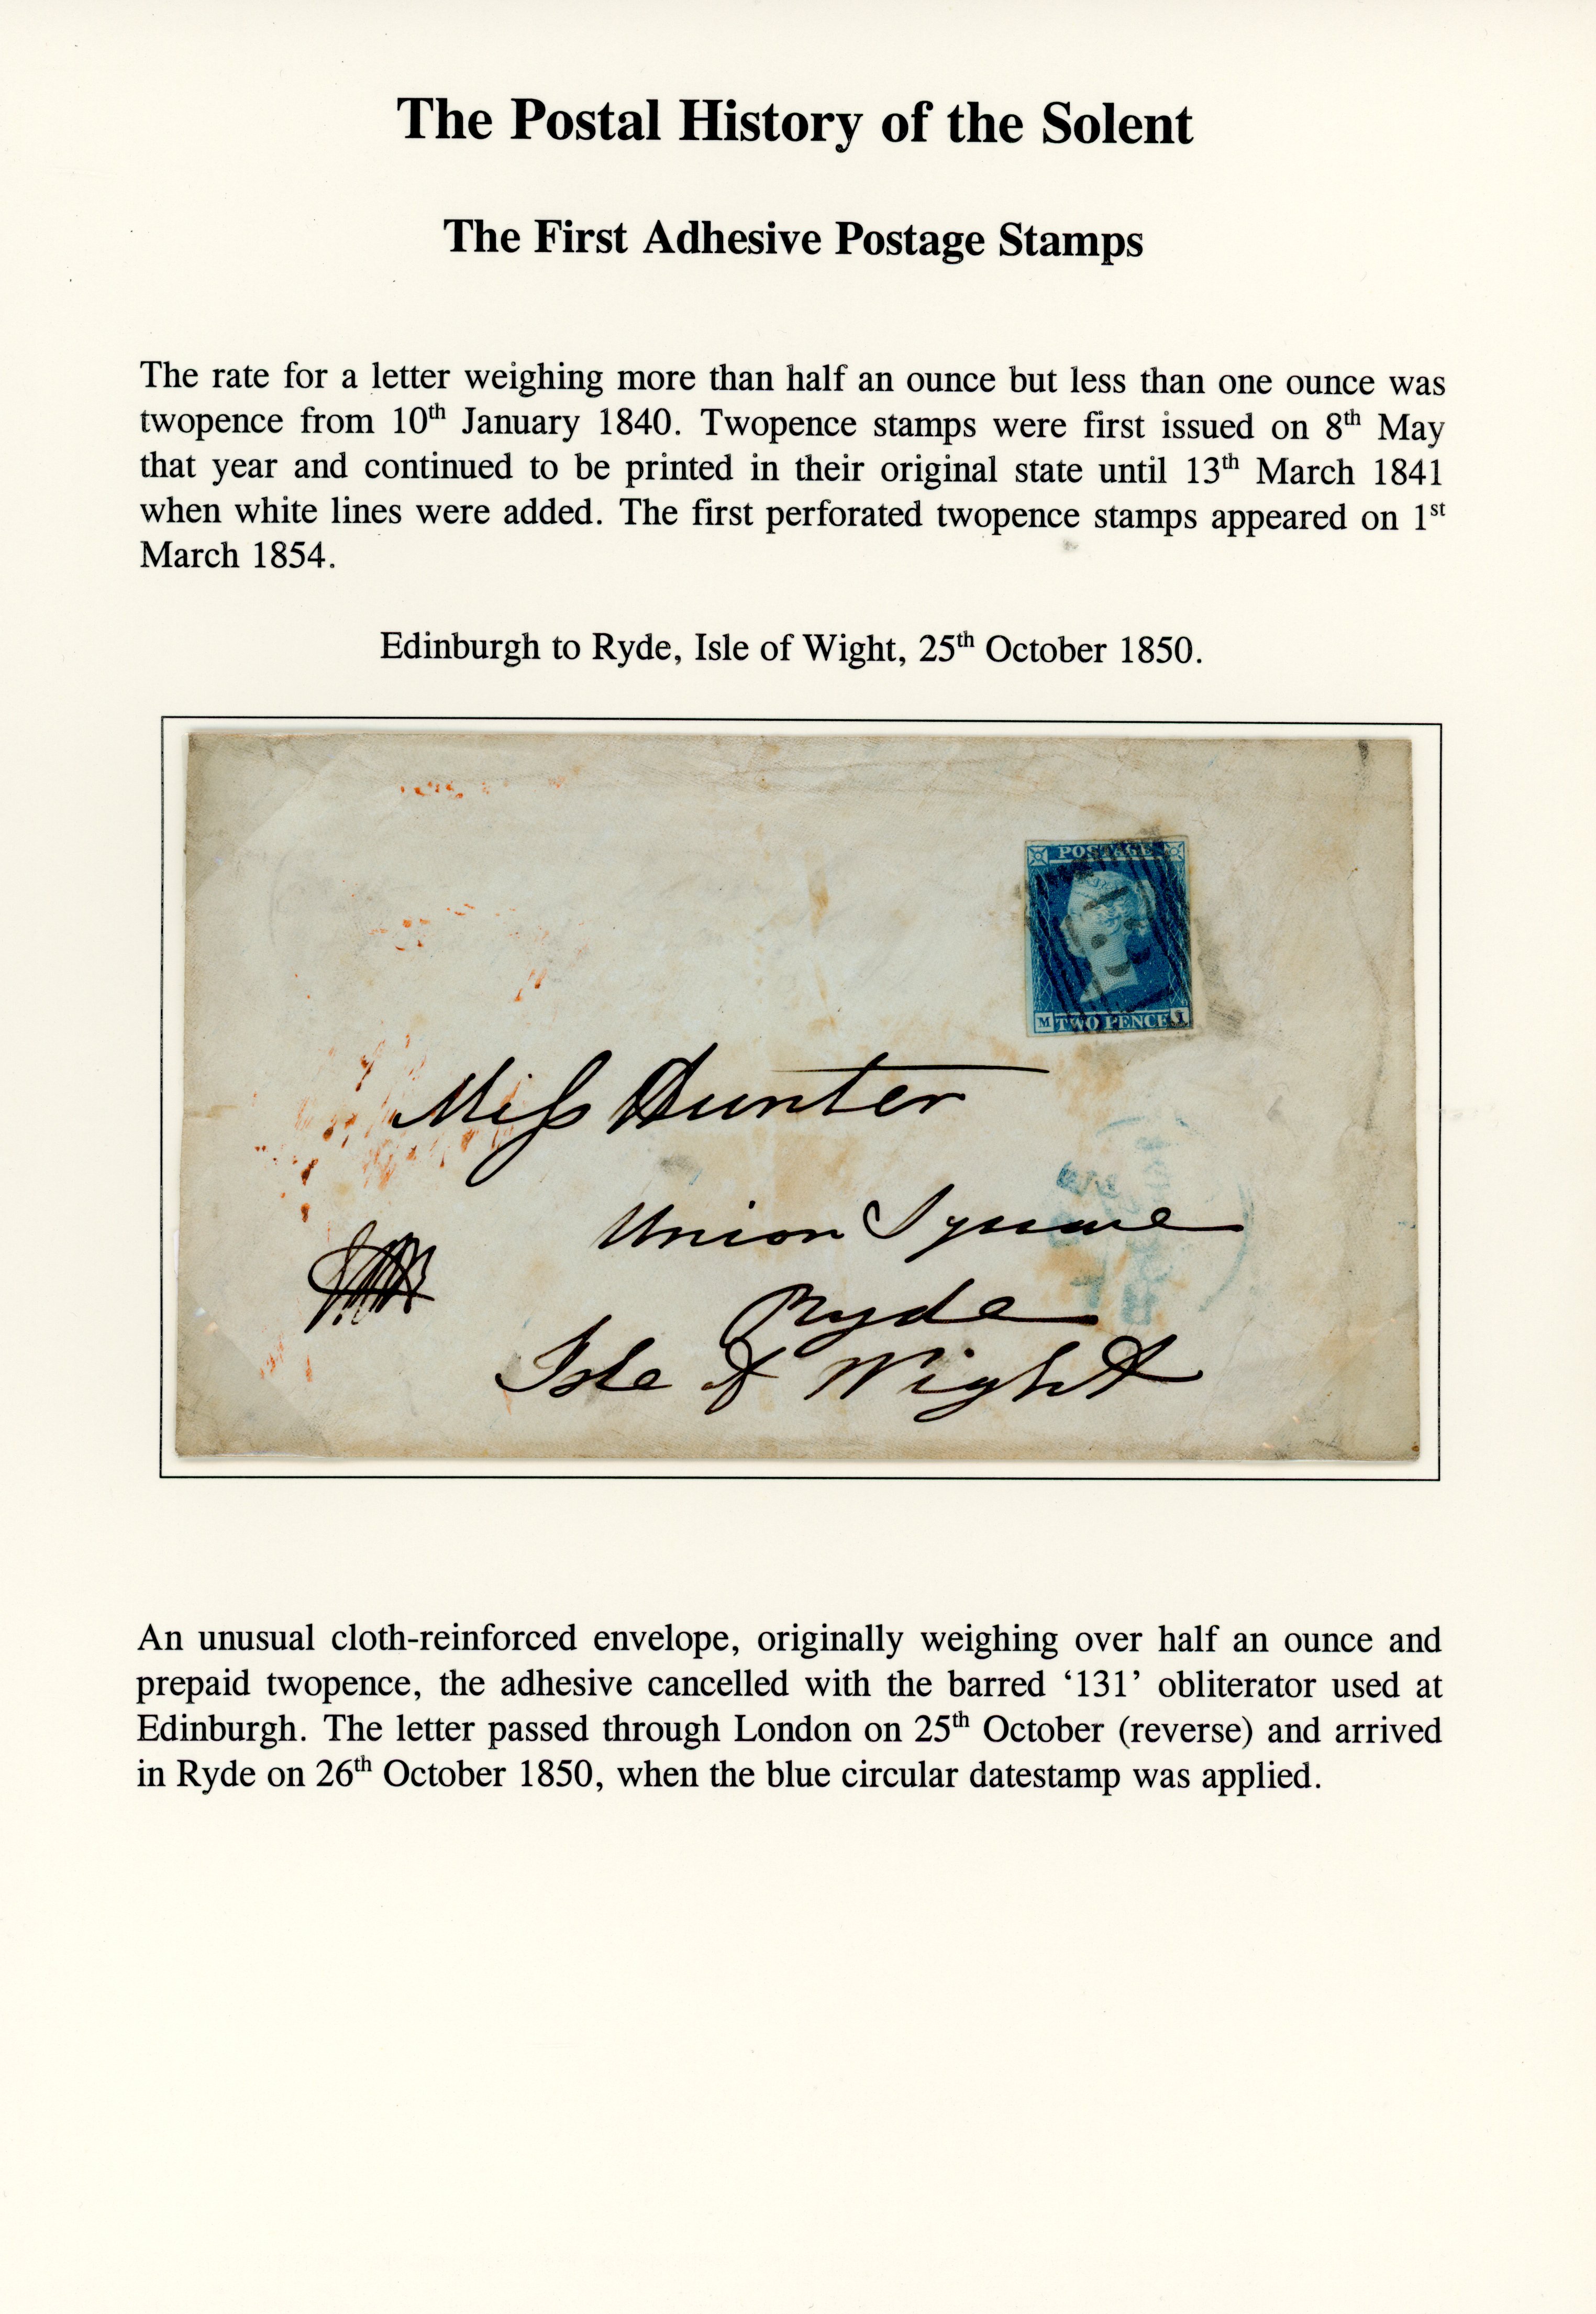 The Postal History of the Solent
The First Adhesive Postage Stamps
The rate for a letter weighing more than half an ounce but less than one ounce was
twopence from 10th January 1840. Twopence stamps were first issued on 8th May
that year and continued to be printed in their original state until 13th March 1841
when white lines were added. The first perforated twopence stamps appeared on 1st
March 1854.
Edinburgh to Ryde, Isle of Wight, 25th October 1850.
POSTAGE
M TWO PENCE I
131
Miss Hunter
Union Square
Ryde
Isle of Wight
An unusual cloth-reinforced envelope, originally weighing over half an ounce and
prepaid twopence, the adhesive cancelled with the barred ‘131’ obliterator used at
Edinburgh. The letter passed through London on 25th October (reverse) and arrived
in Ryde on 26th October 1850, when the blue circular datestamp was applied.